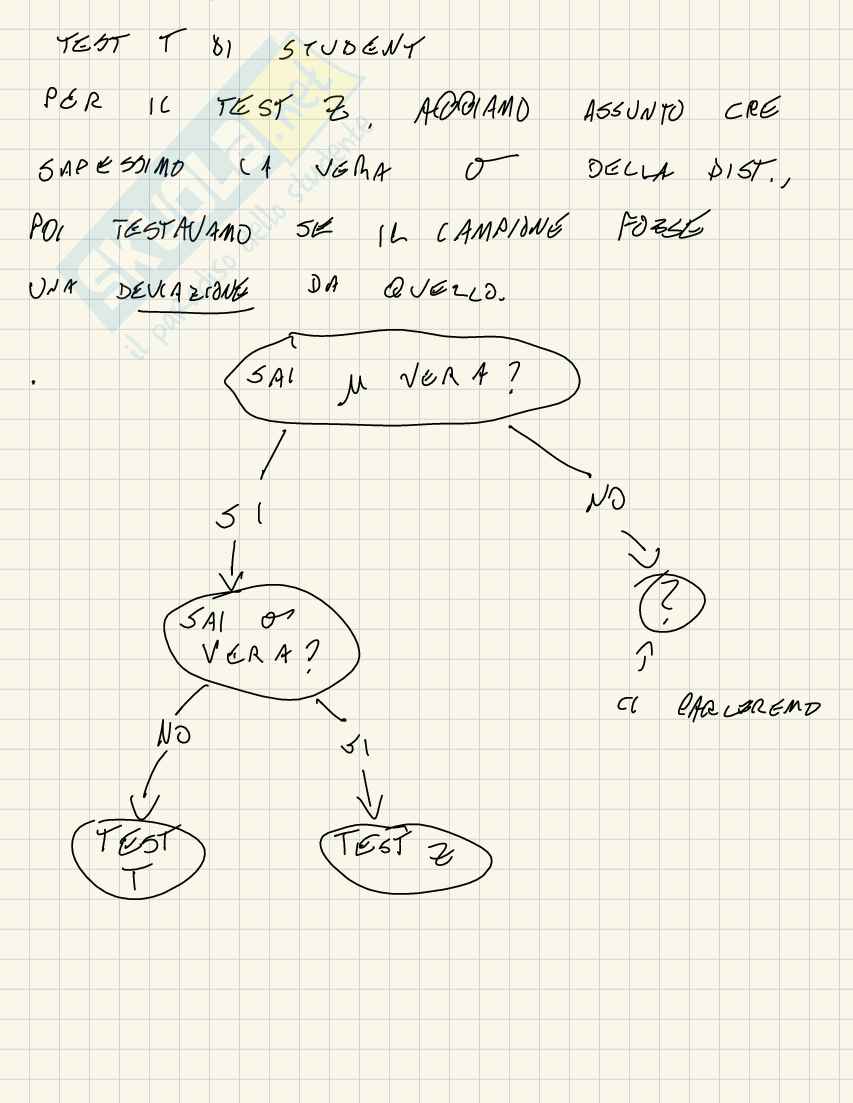 TEST T DI STUDENT
PER IL TEST Z, ABBIAMO ASSUNTO CHE
SAPESSIMO LA VERA σ DELLA DIST.,
POI TESTAVAMO SE IL CAMPIONE FOSSE
UNA DEVIAZIONE DA QUELLO.
SAI μ VERA?
SI
NO
SAI σ
VERA?
?
CI PARLEREMO
NO
SI
TEST
T
TEST Z
SKUOLA.net
il paradiso dello studente